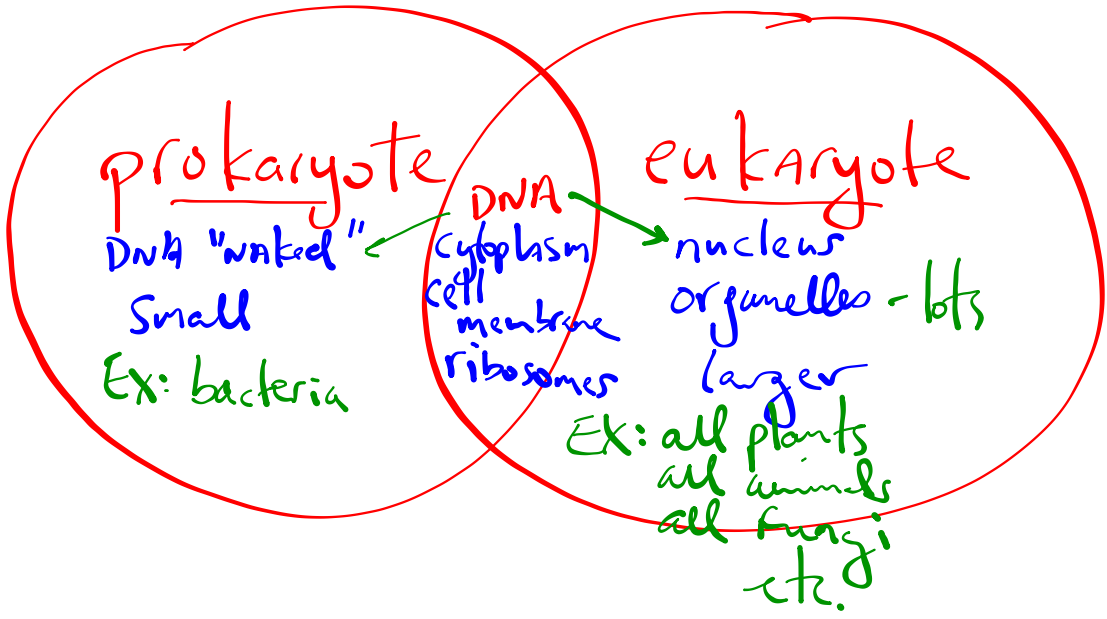 prokaryote
DNA "NAked"
Small
Ex: bacteria
DNA
cytoplasm
cell
membrane
ribosomes
eukaryote
nucleus
organelles - lots
larger
Ex: all plants
all animals
all fungi
etc.